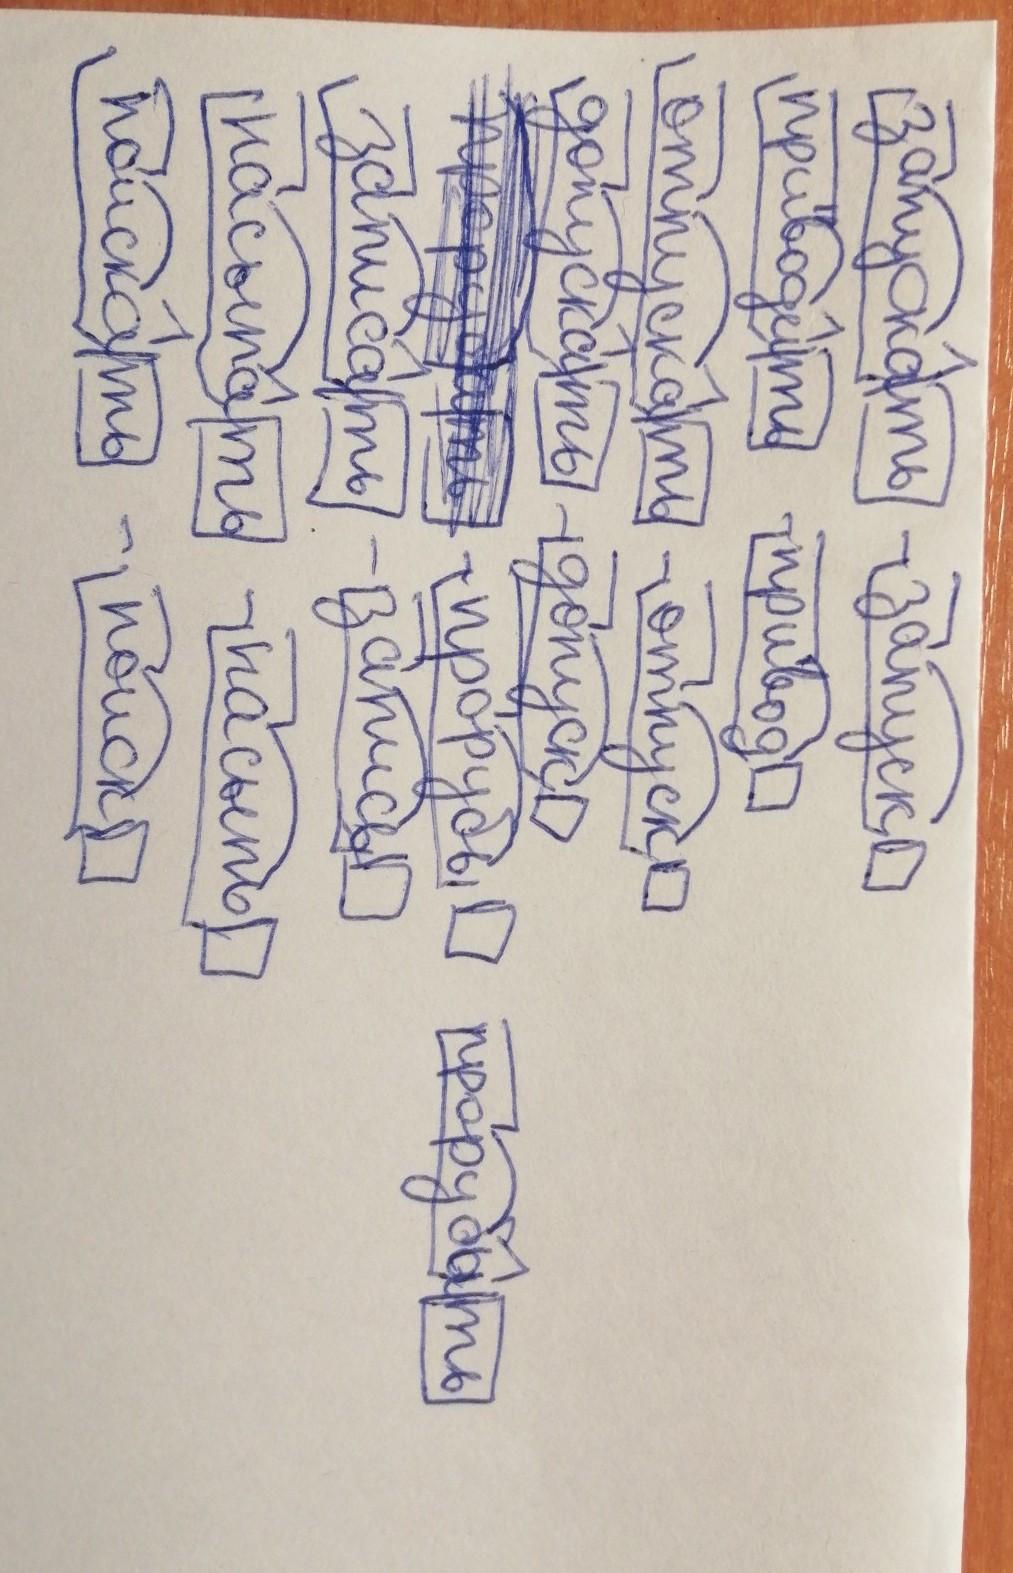 запускать - запуск
приводить - привод
отпускать - отпуск
допускать - допуск
- прорубь прорубать
записать - запись
насыпать - насыпь
поискать - поиск